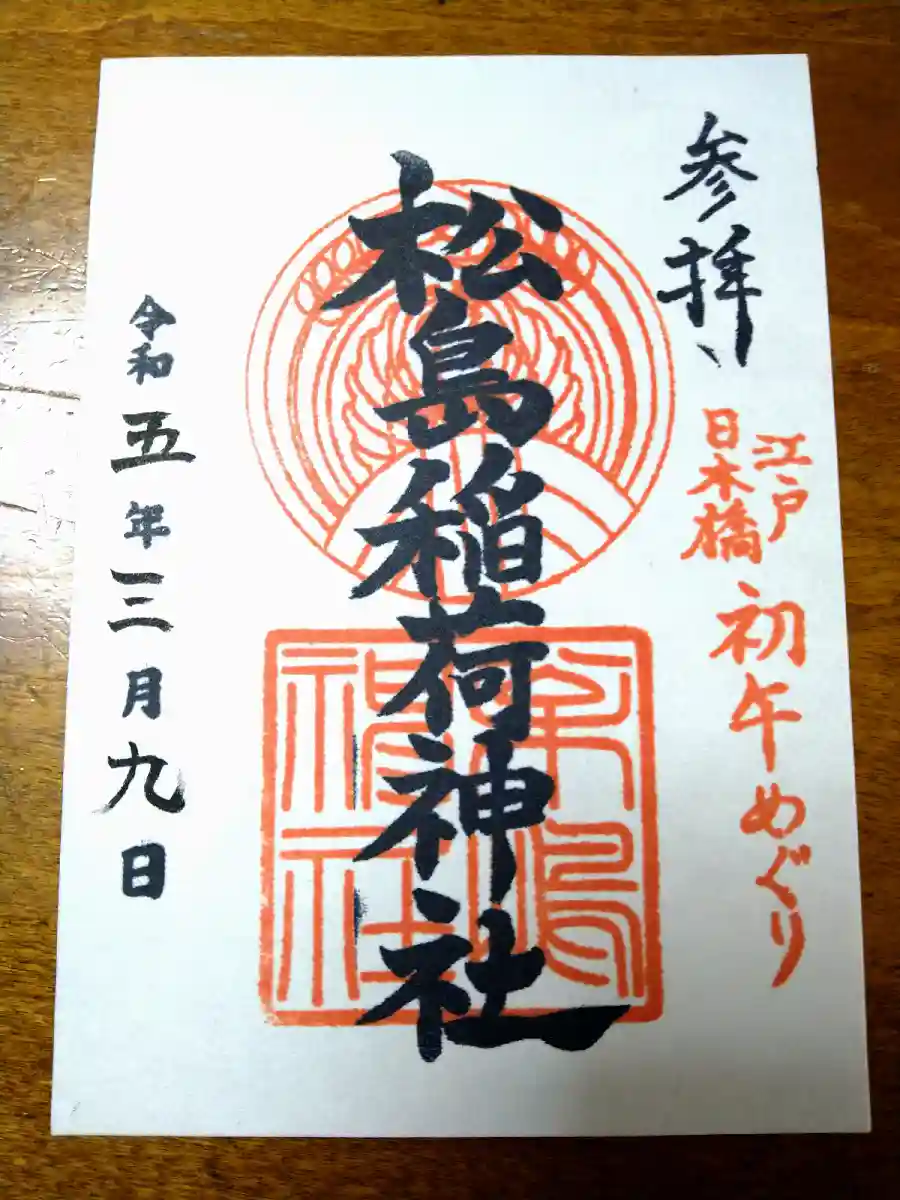 参拝
江戸
日本橋
初午めぐり
松島稲荷神社
松島神社
令和五年三月九日